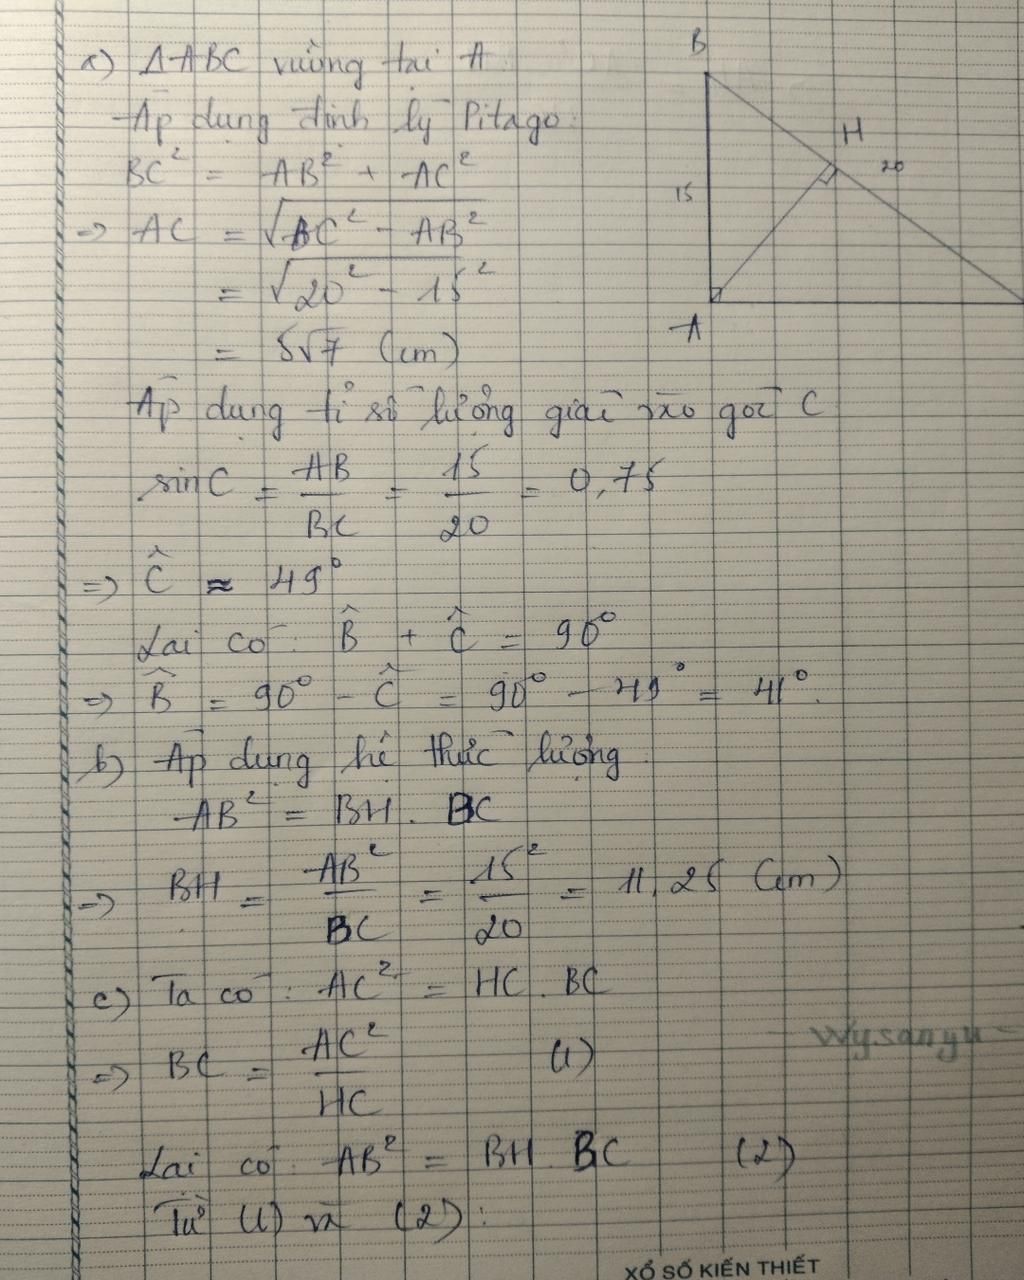 a) ΔABC vuông tại A
Áp dụng định lý Pitago:
BC² = AB² + AC²
=> AC = √BC² - AB²
= √20² - 15²
= 5√7 (cm)
Áp dụng tỉ số lượng giác vào góc C
sinC = AB/BC = 15/20 = 0,75
=> Ĉ ≈ 49°
Lại có: B̂ + Ĉ = 90°
=> B̂ = 90° - Ĉ = 90° - 49° = 41°.
b) Áp dụng hệ thức lượng
AB² = BH . BC
=> BH = AB²/BC = 15²/20 = 11,25 (cm)
c) Ta có: AC² = HC . BC
=> BC = AC²/HC (1)
Lại có: AB² = BH . BC (2)
Từ (1) và (2):
B
H
20
15
A
Wysanyu
XỔ SỐ KIẾN THIẾT